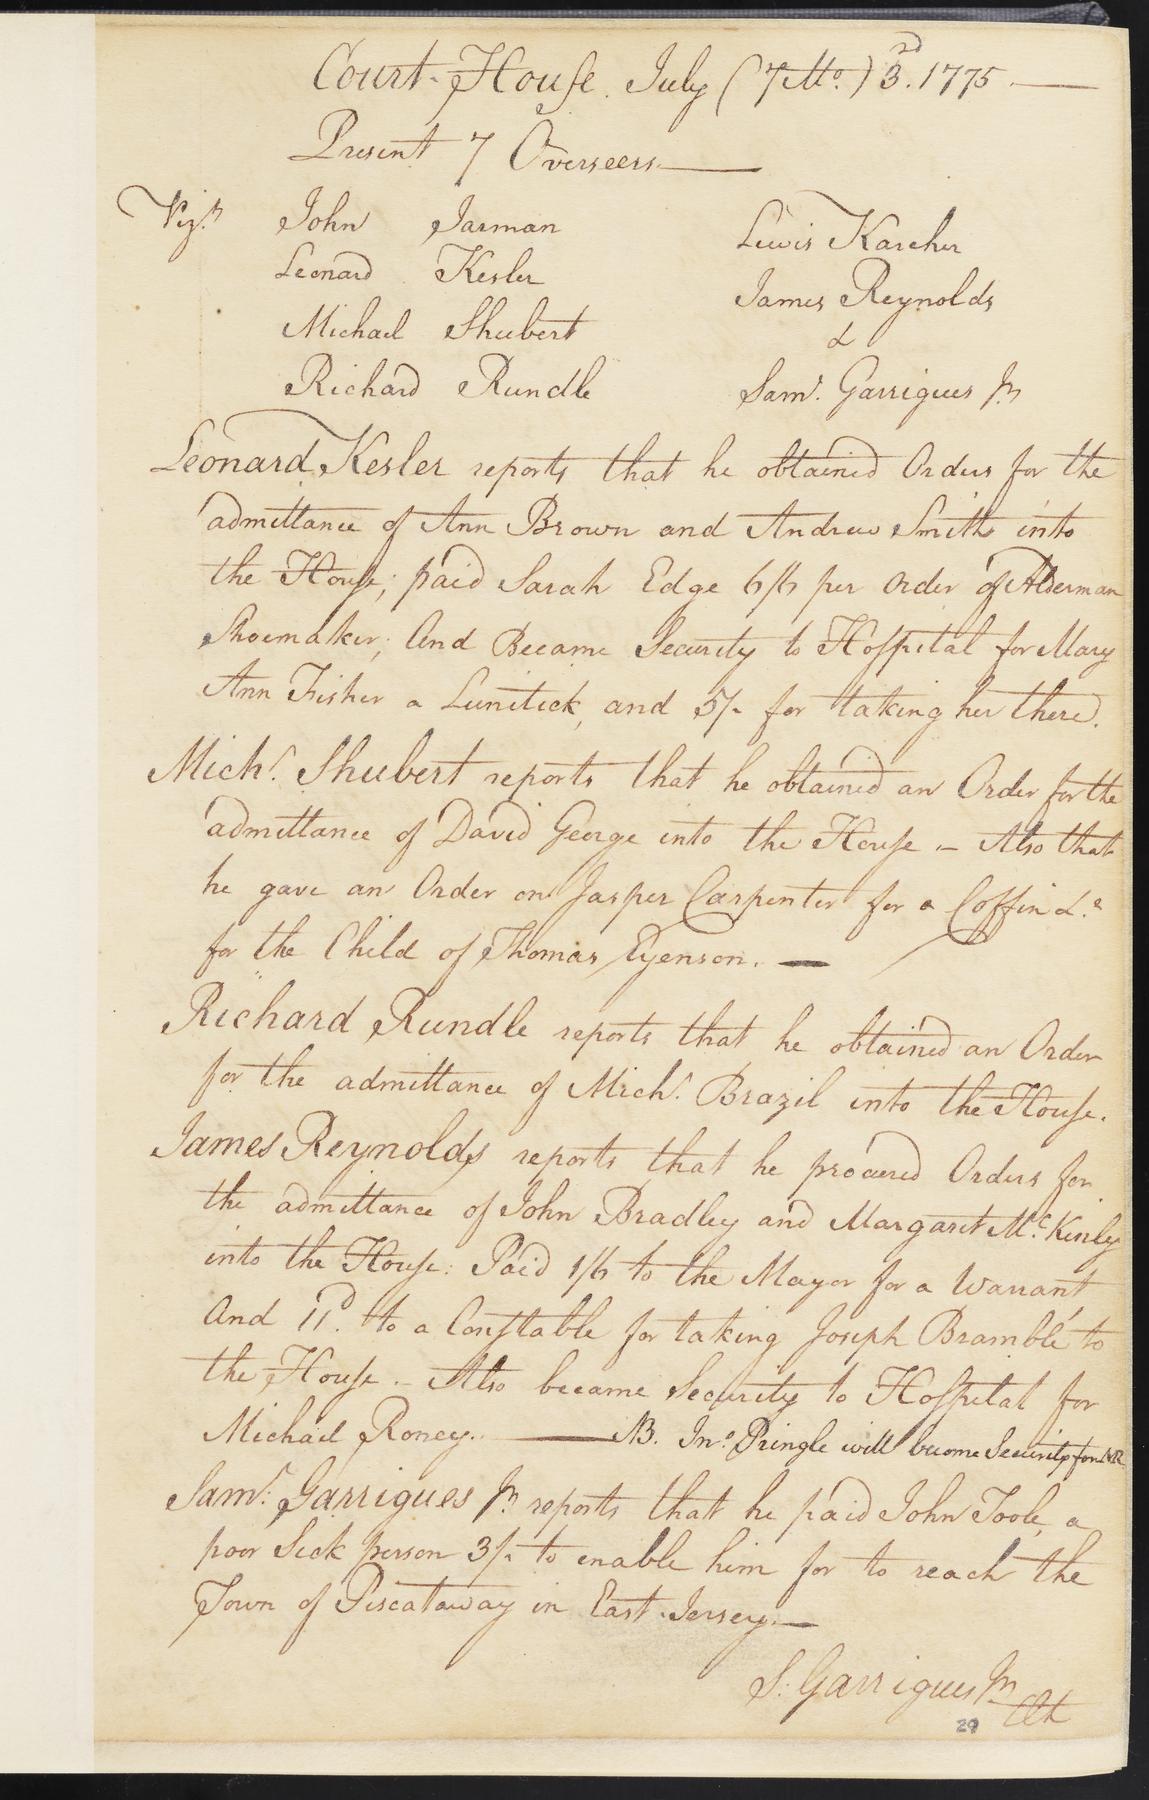 Court-House. July (7 Mo.) 3rd. 1775 —
Present 7 Overseers —
Vizt. John Jarman
Leonard Kesler
Michael Shubert
Richard Rundle
Lewis Karcher
James Reynolds
&
Saml. Garrigues Jn
Leonard Kesler reports that he obtained Orders for the
admittance of Ann Brown and Andrew Smith into
the House; paid Sarah Edge 6/6 per Order of Alderman
Shoemaker; And Became Security to Hospital for Mary
Ann Fisher a Lunitick, and 5/- for taking her there.
Michl. Shubert reports that he obtained an Order for the
admittance of David George into the House. – Also that
he gave an Order on Jasper Carpenter for a Coffin &c
for the Child of Thomas Eyenson. —
Richard Rundle reports that he obtained an Order
for the admittance of Michl. Brazil into the House.
James Reynolds reports that he procured Orders for
the admittance of John Bradley and Margaret McKinley
into the House: Paid 1/6 to the Mayor for a Warrant
And 11d. to a Constable for taking Joseph Bramble to
the House. – Also became Security to Hospital for
Michael Roney. — NB. Jno. Pringle will become Security for MR
Saml. Garrigues Jn reports that he paid John Toole, a
poor Sick person 3/- to enable him for to reach the
Town of Piscataway in East Jersey. —
S. Garrigues Jn
Clk
29